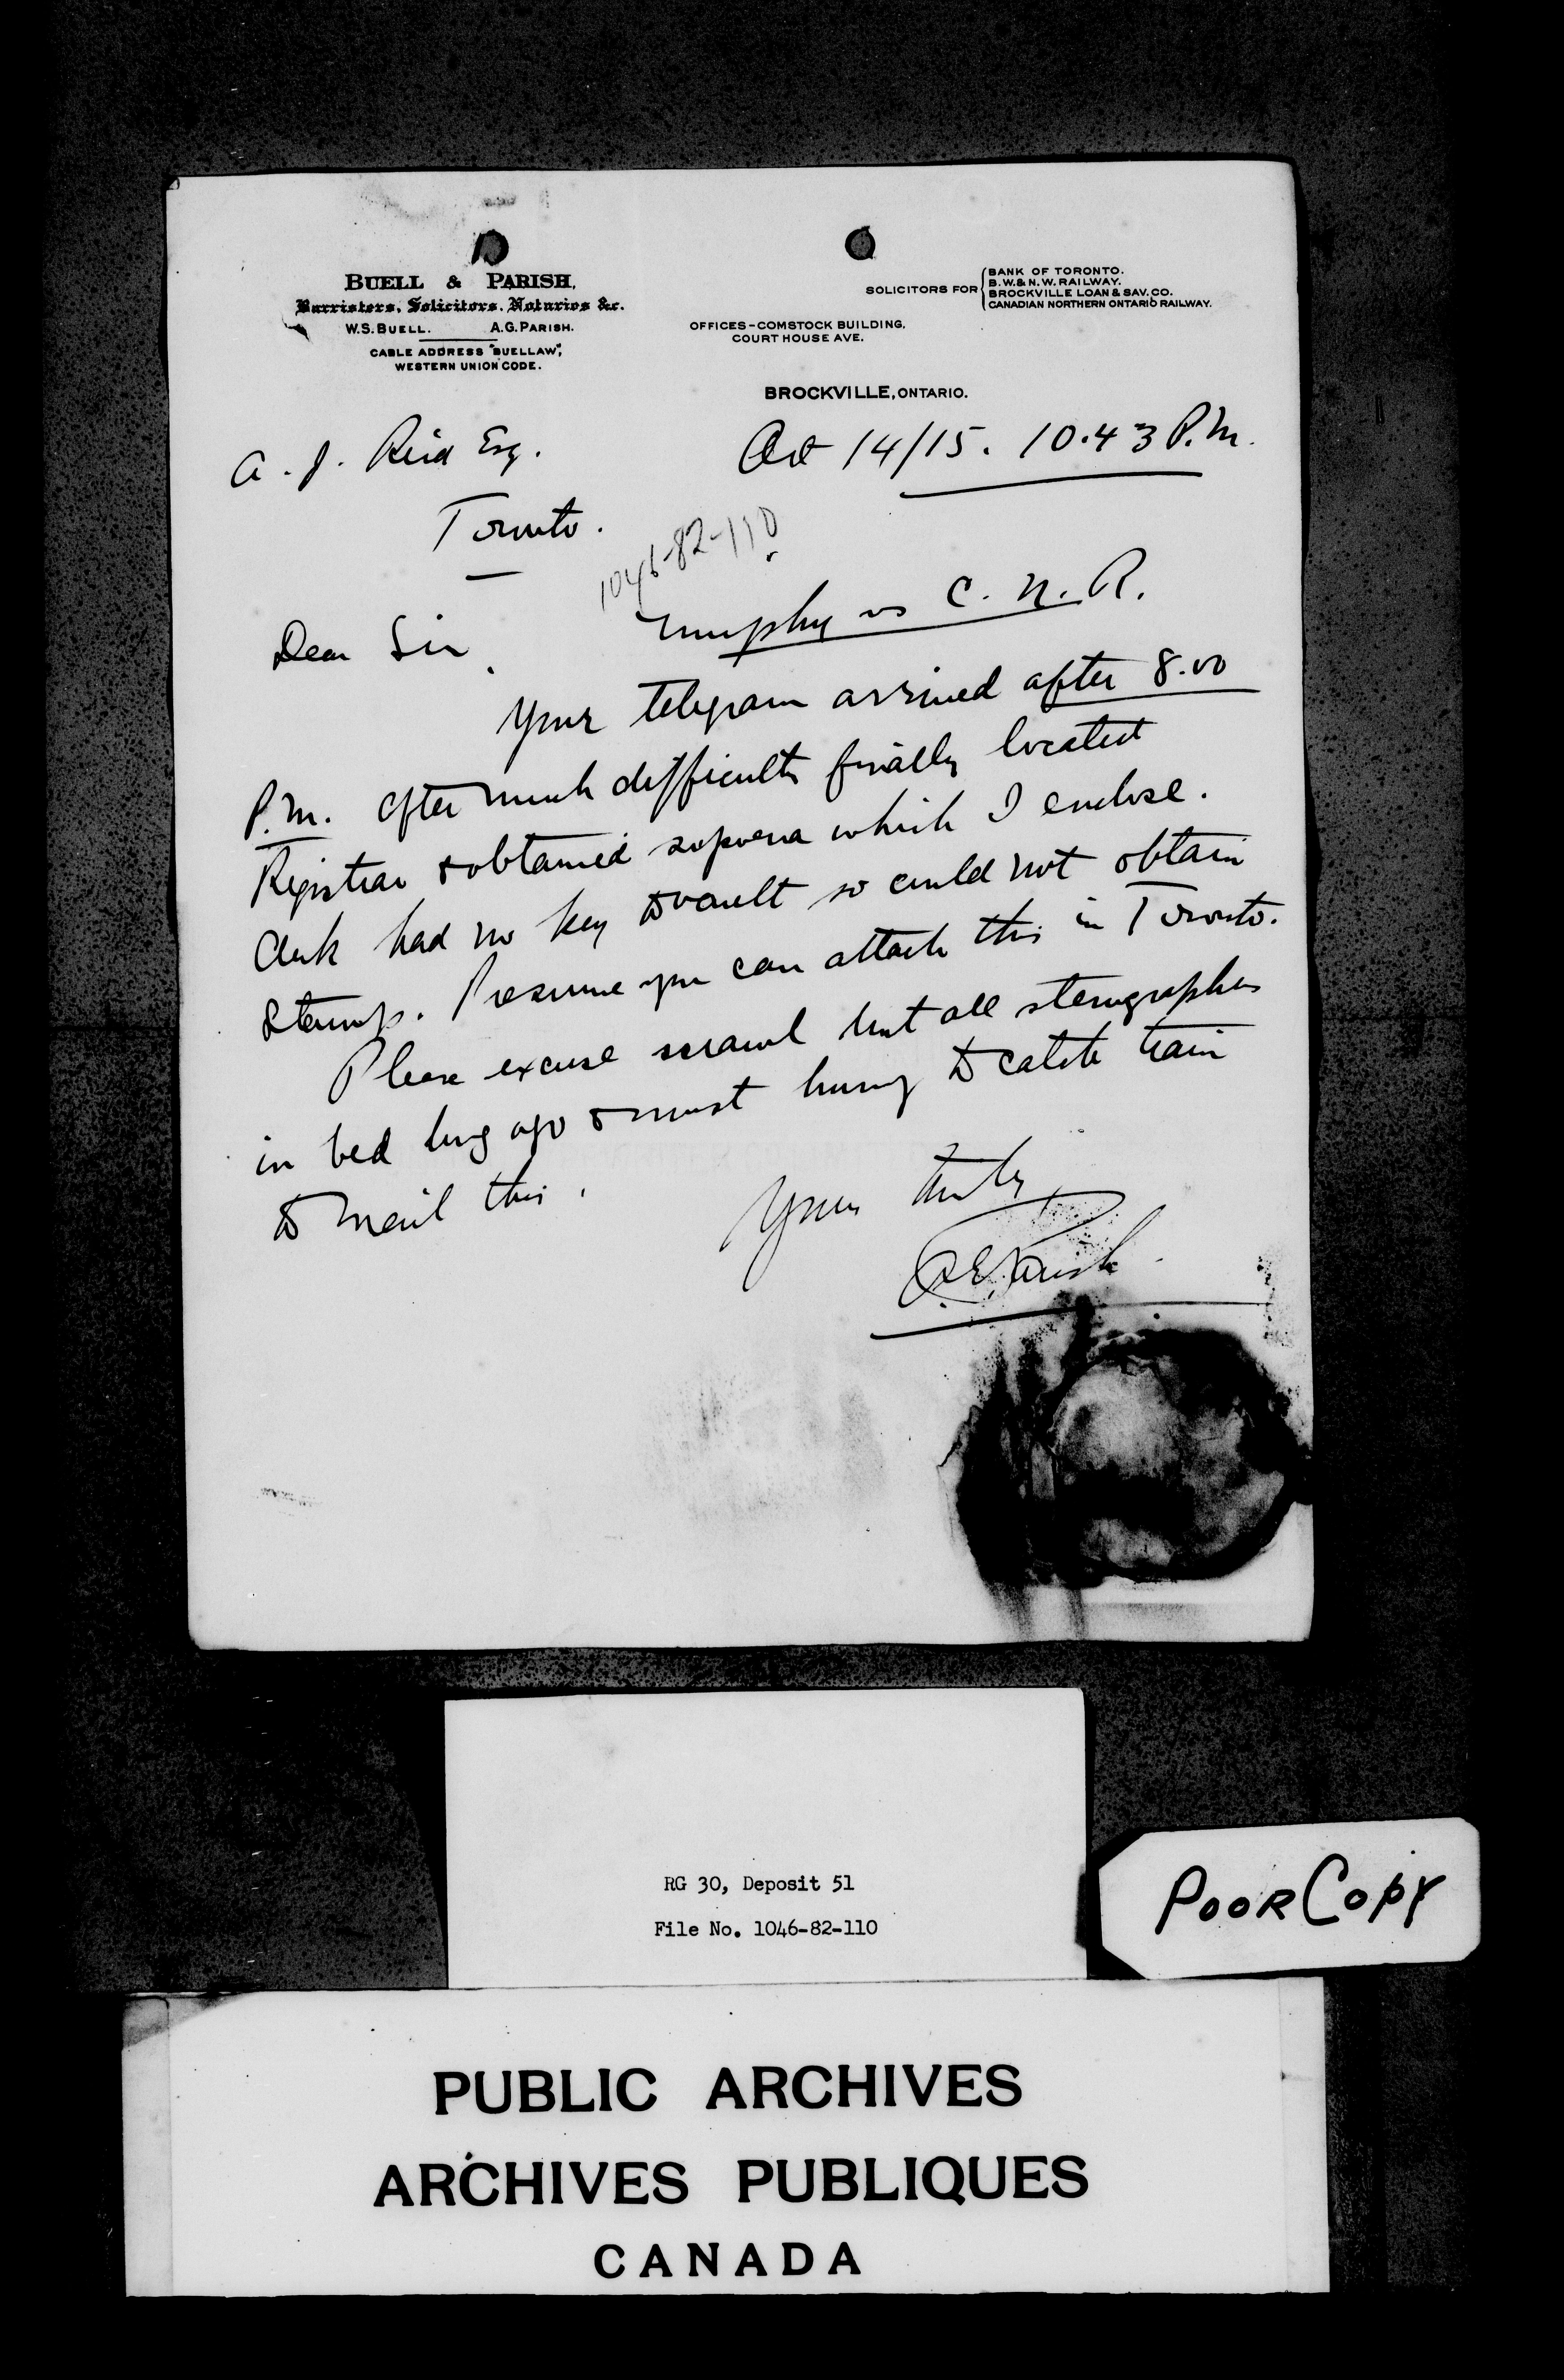 BUELL & PARISH,
Barristers, Solicitors, Notaries &c.
W.S. BUELL. A.G. PARISH.
CABLE ADDRESS "BUELLAW",
WESTERN UNION CODE.
SOLICITORS FOR
BANK OF TORONTO.
B.W. & N.W. RAILWAY.
BROCKVILLE LOAN & SAV. CO.
CANADIAN NORTHERN ONTARIO RAILWAY.
OFFICES-COMSTOCK BUILDING,
COURT HOUSE AVE.
BROCKVILLE, ONTARIO.
Oct 14/15. 10.43 P.M.
A. J. Reid Esq.
Toronto.
1046-82-110
Murphy vs C. N. R.
Dear Sir
Your telegram arrived after 8.00
P.M. After much difficulty finally located
Registrar & obtained supoena which I enclose.
Clerk had no key to vault so could not obtain
stamp. Presume you can attach this in Toronto.
Please excuse scrawl but all stenographers
in bed long ago & must hurry to catch train
to mail this.
Yours truly
Parish
RG 30, Deposit 51
File No. 1046-82-110
POOR COPY
PUBLIC ARCHIVES
ARCHIVES PUBLIQUES
CANADA